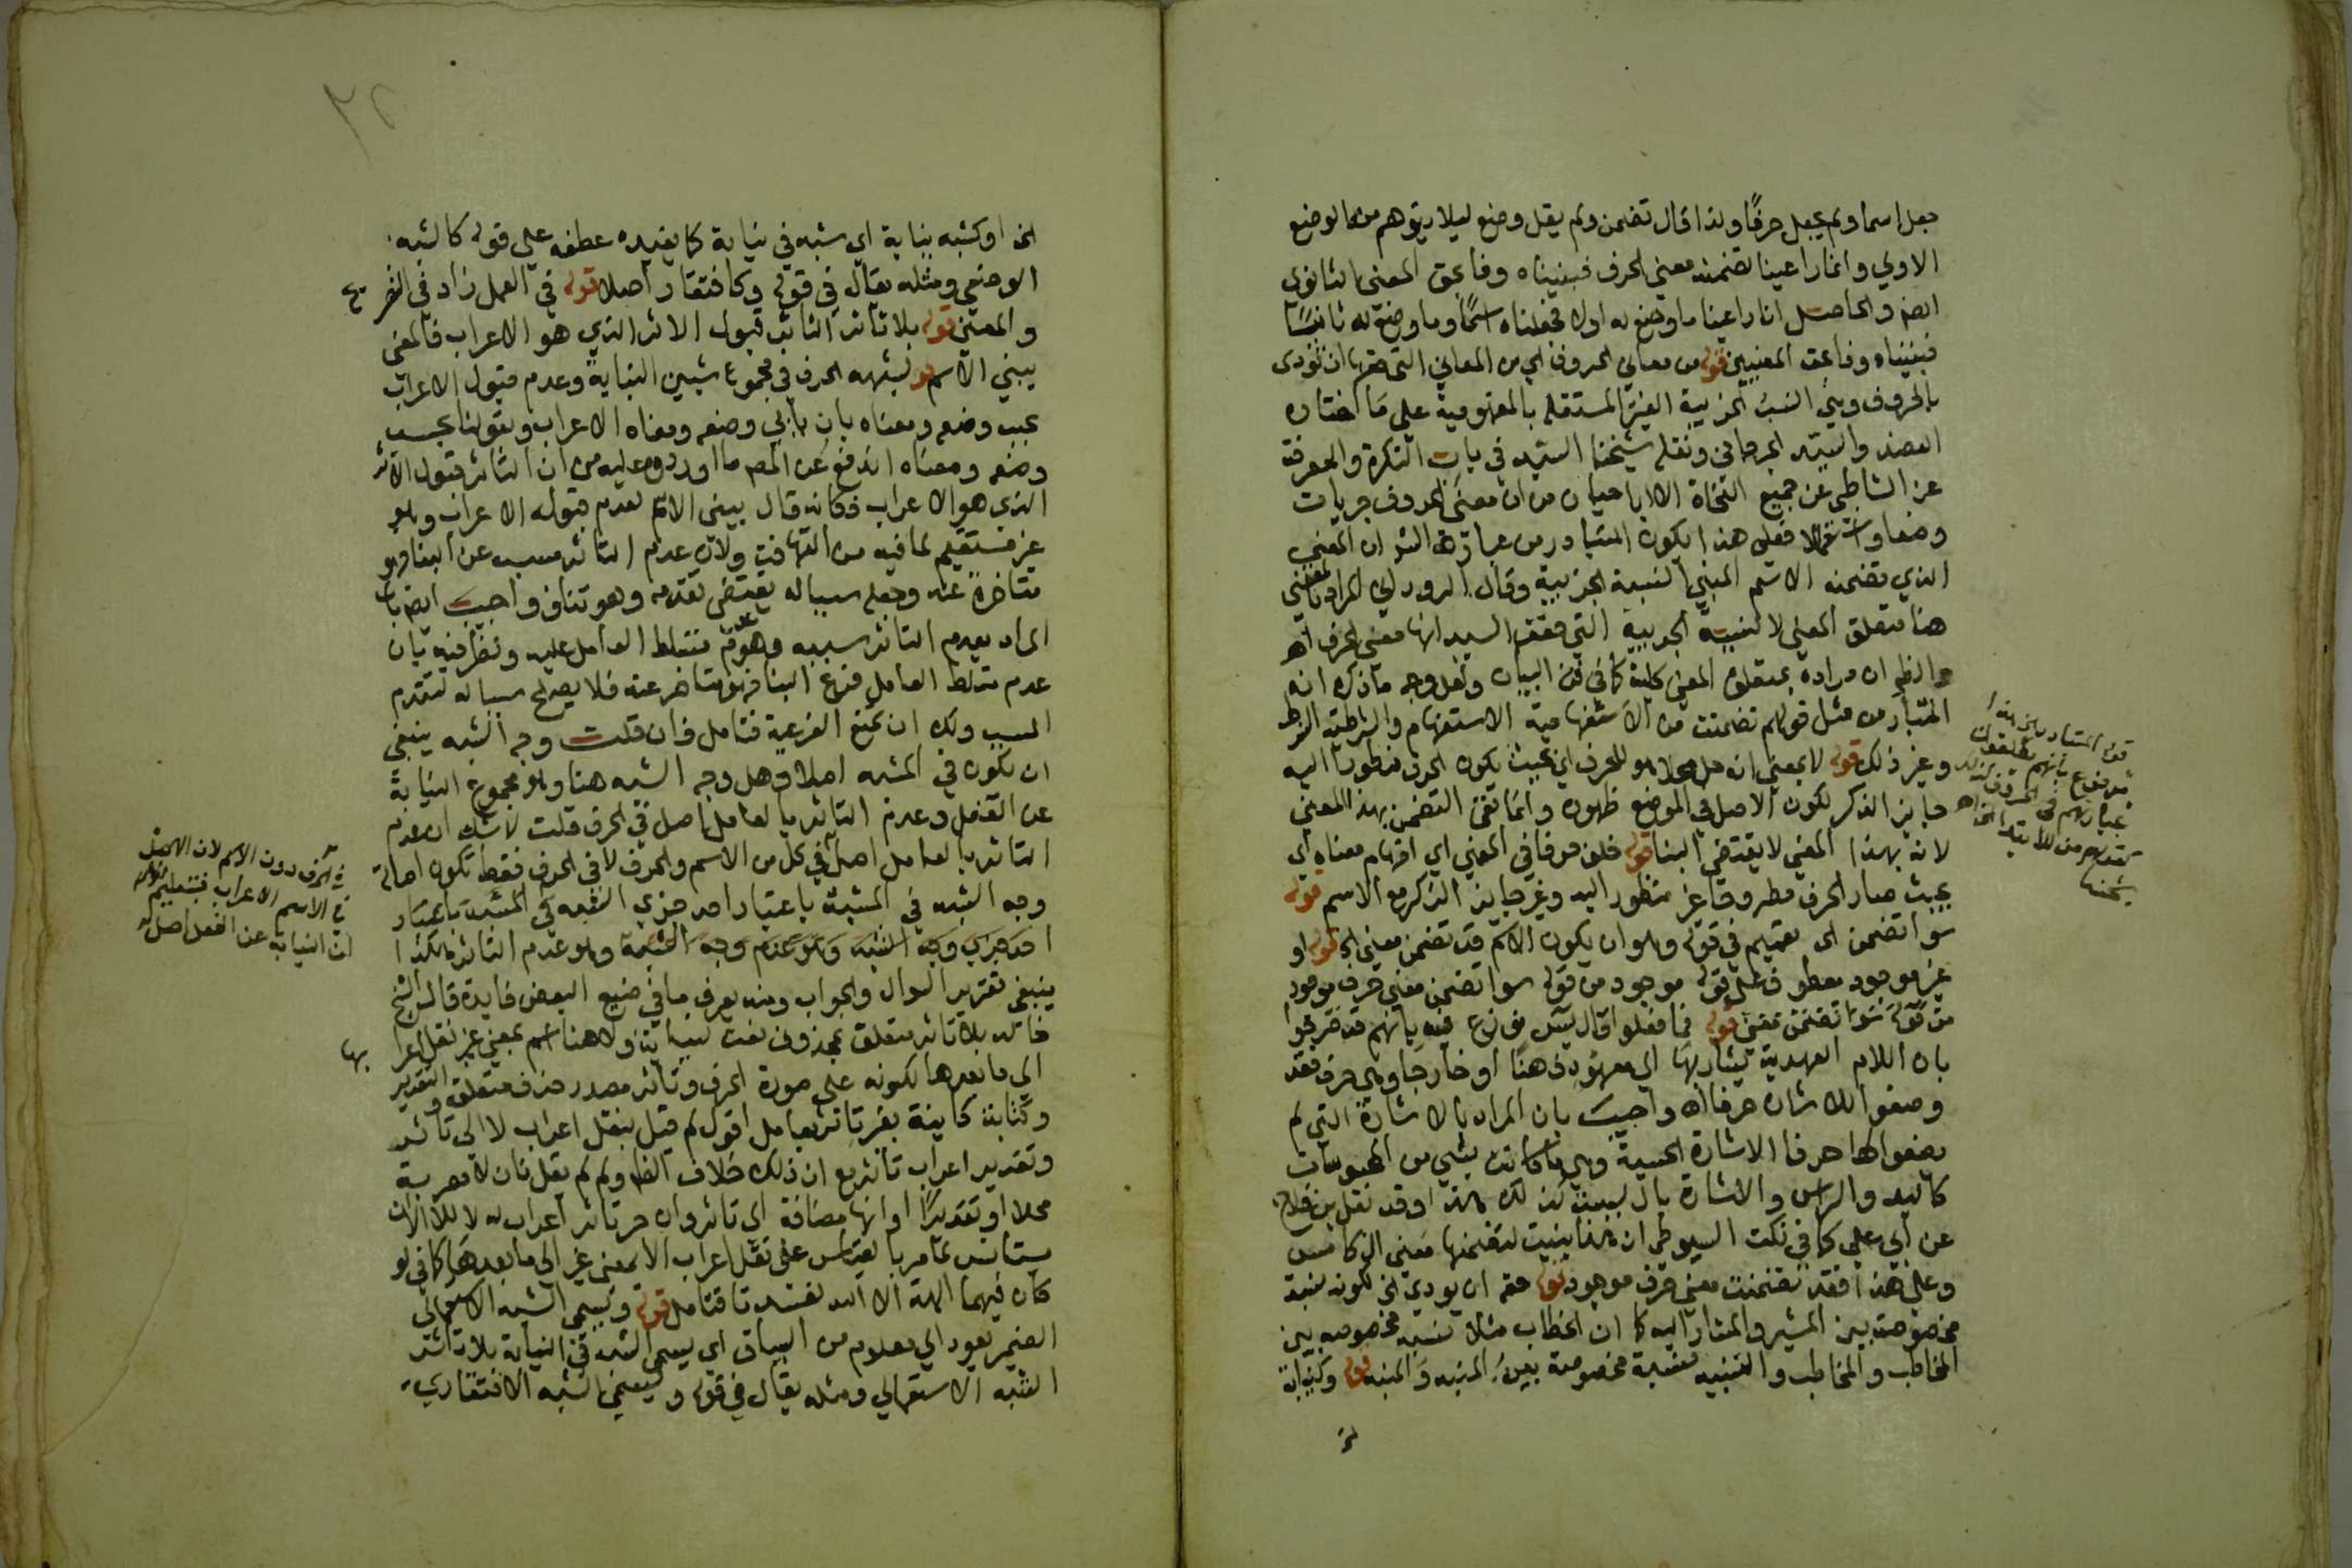 جعل اسما ولم يجعل حرفا ولذا قال تضمن ولم يقل وضع ليلا يتوهم من الوضع
الاولي وانما راعينا تضمنه معنى الحرف فبنيناه وفا بحق المعنى الثانوي
ايضا والحاصل انا راعينا ما وضع له اولا فجعلناه اسما وما وضع له ثانيا
فبنيناه وفا بحق المعنيين قوله من معاني الحروف اي من المعاني التي حقها ان تؤدى
بالحروف وهي النسب الجزيية الغير المستقلة بالمفهومية على ما اختاره
العضد والسيد الجرجاني ونقله شيخنا السيد في باب النكرة والمعرفة
عن الشاطبي عن جميع النحاة الا ابا حيان من ان معنى الحروف جزيات
وضعا واستعمالا فعلى هذا يكون المتبادر من عبارة الش ان المعنى
الذي تضمنه الاسم المبني النسبة الجزيية وقال الروداني المراد بالمعنى
هنا متعلق المعنى لا النسبة الجزيية التي حقق السيد انها معنى الحرف اهـ
والظ ان مراده بمتعلق المعنى كليته كما في فن البيان ولعل وجه ما ذكره انه
المتبادر من مثل قولهم تضمنت من الاستفهامية الاستفهام والشرطية الشرط
وغير ذلك قوله لا بمعنى انه حل محلا هو للحرف اي بحيث يكون الحرف منظورا اليه
جايز الذكر لكون الاصل في الموضع ظهوره وانما نفى التضمن بهذا المعنى
لانه بهذا المعنى لا يقتضي البنا قوله خلف حرفا في المعنى اي افهام معناه اي
بحيث صار الحرف مطروحا غير منظور اليه وغير جايز الذكر مع الاسم قوله
سوا تضمن الى تعميم في قوله وهو ان يكون الاسم قد تضمن معنى الخ قوله او
غير موجود معطوف على قوله موجود من قوله سوا تضمن معنى حرف موجود
من قوله سوا تضمن معنى قوله فما فعلوا قال يس نوزع فيه بانهم قد صرحوا
بان اللام العهدية يشار بها الى معهود ذهنا او خارجا وهي حرف فقد
وضعوا للاشارة حرفا اهـ واجيب بان المراد بالاشارة التي لم
يضعوا لها حرفا الاشارة الحسية وهي ما كانت بشي من المحسوسات
كاليد والراس والاشارة بال ليست كذلك هذا وقد نقل بن فلاح
عن ابي علي كما في نكت السيوطي ان هنا بنيت لتضمنها معنى ال كامس
وعلى هذا فقد تضمنت معنى حرف موجود قوله حقه ان يودي الخ لكونه نسبة
مخصوصة بين المشير والمشار اليه كما ان الخطاب مثلا نسبة مخصوصه بين
المخاطب والمخاطب والتنبيه نسبة مخصوصة بين المنبه والمنبه قوله وكنيابة
قوله المتبادر
بانهم يطلقون
في الحروف كذلك
شيخنا
الخ او كشبه نيابة اي شبه في نيابة كما يفيده عطفه على قوله كالشبه
الوضعي ومثله يقال في قوله وكافتقار اصلا قوله في العمل زاد في التصريح
والمعنى قوله بلا تاثر التاثر قبول الاثر الذي هو الاعراب فالمعنى
يبني الاسم لو لشبهه الحرف في مجموع شيين النيابة وعدم قبول الاعراب
بحسب وضعه ومعناه بان يابى وضعه ومعناه الاعراب وبقولنا بحسب
وضعه ومعناه اندفع عن المص ما اوردوه عليه من ان التاثر قبول الاثر
الذي هو الاعراب فكانه قال يبنى الاسم لعدم قبوله الاعراب وهو
غير مستقيم لما فيه من التهافت ولان عدم التاثر مسبب عن البنا فهو
متاخر عنه وجعله سببا له يقتضي تقدمه وهو تناف واجيب ايضا بان
المراد بعدم التاثر سببه وهو عدم تسلط العامل عليه ونظر فيه بان
عدم تسلط العامل فرع البنا فهو متاخر عنه فلا يصلح سببا له لتقدم
السبب ولك ان تمنع الفرعية فتامل فان قلت وجه الشبه ينبغي
ان يكون في المشبه اصلا وهل وجه الشبه هنا وهو مجموع النيابة
عن الفعل وعدم التاثر بالعامل اصل في الحرف قلت لا شك ان عدم
التاثر بالعامل اصل في كل من الاسم والحرف لا في الحرف فقط تكون اصالة
وجه الشبه في المشبه باعتبار احد جزي الشبه في المشبه باعتبار
احد جزي وجه الشبه وهو عدم وجه الشبه وهو عدم التاثر هكذا
ينبغي تقرير السوال والجواب ومنه يعرف ما في صنيع البعض فايدة قال الشيخ
خالد بلا تاثر متعلق بمحذوف نعت لنيابة ولا هنا اسم بمعنى غير نقل اعرابها
الى ما بعدها لكونه على صورة الحرف وتاثر مصدر حذف متعلقه والتقدير
وكنيابة كاينة بغير تاثر بعامل اقول لم قيل بنقل اعراب لا الى تاثر
وتقدير اعراب تاثر مع ان ذلك خلاف الظ ولم لم يقل بان لا معربة
محلا او تقديرا وانها مضافة الى تاثر وان جر تاثر اعراب له لا للا الا ان
يستانس لما مر بالقياس على نقل اعراب الا بمعنى غير الى ما بعدها كما في لو
كان فيهما الهة الا الله لفسدتا فتامل قوله ويسمى الشبه الاستعمالي
الضمير يعود الى معلوم من السياق اي يسمى الشبه في النيابة بلا تاثر
الشبه الاستعمالي ومثله يقال في قوله ويسمى الشبه الافتقاري
في الحرف دون الاسم لان الاصل
في الاسم الاعراب
ان النيابة عن الفعل اصل